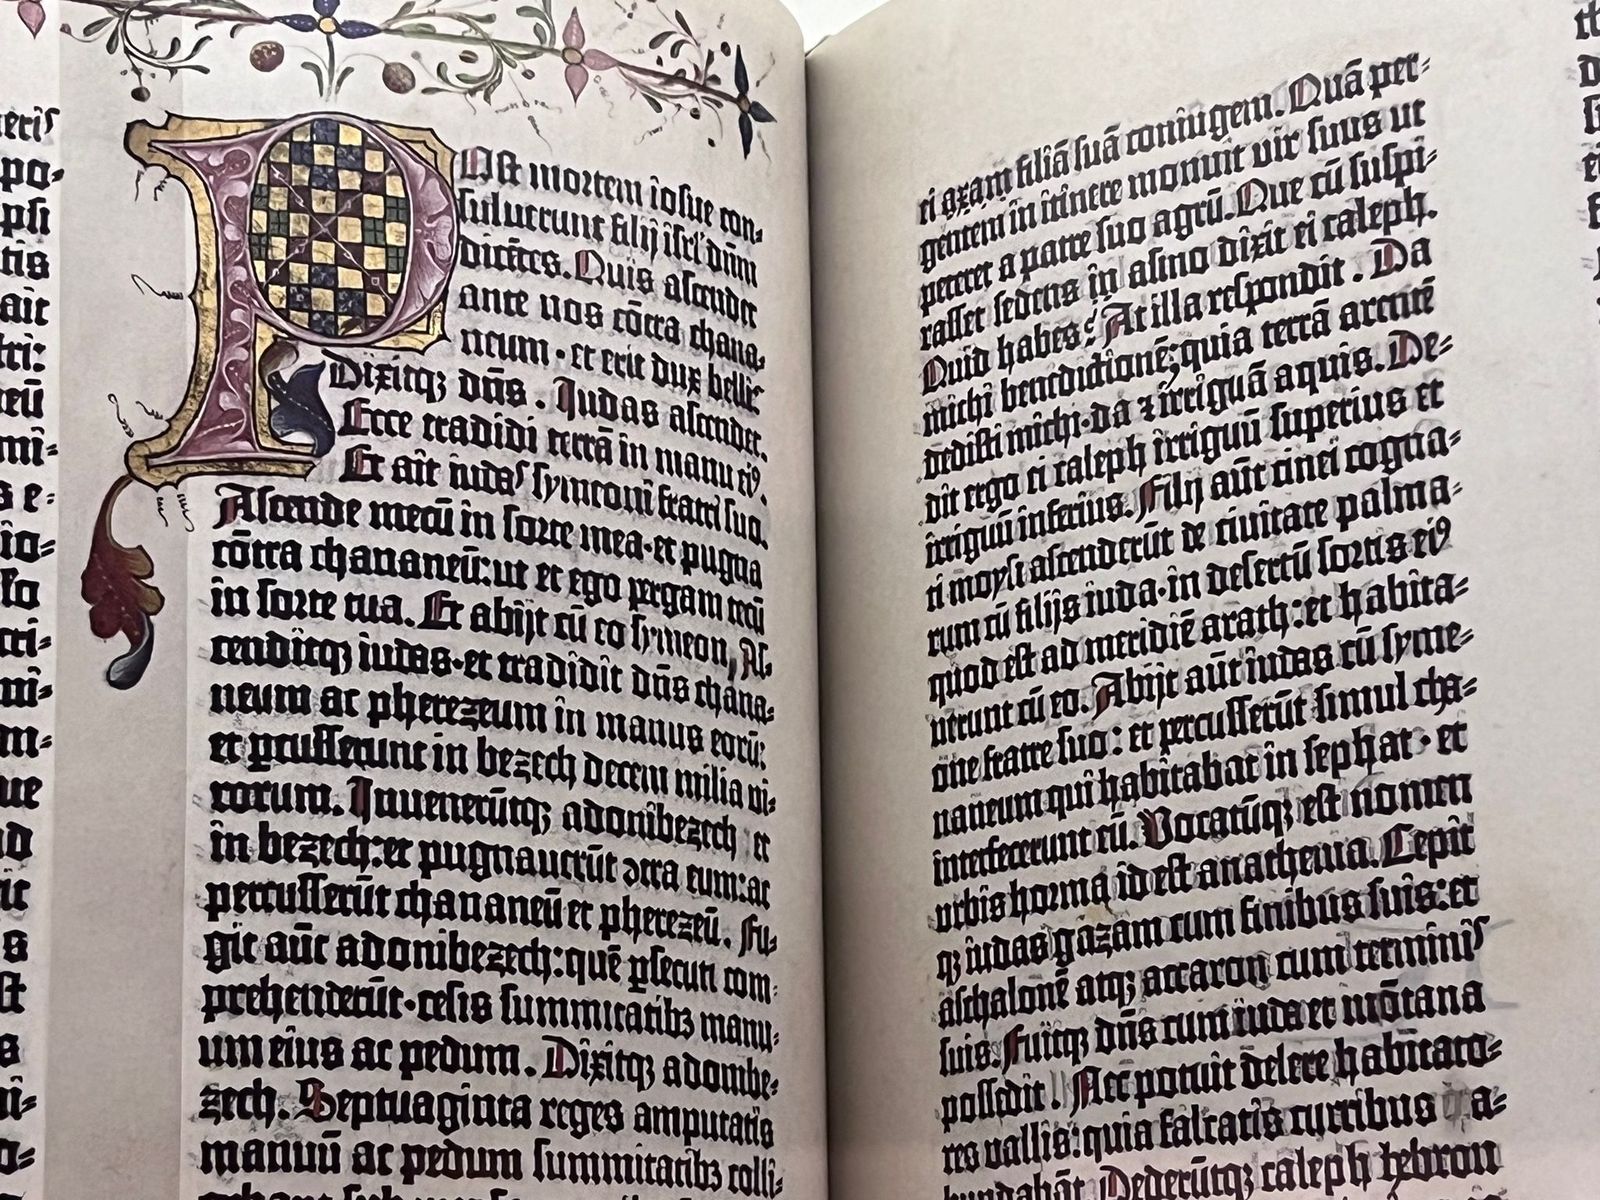 Post mortem iosue con-
suluerunt filij isrl' dūm
dicētes. Quis ascendet
ante nos cōtra chana-
neum · et erit dux belli?
Dixitqꝫ dn̄s. Iudas ascendet.
Ecce tradidi terrā in manu eiꝰ.
Et ait iudas symeoni fratri suo.
Ascende mecū in sorte mea · et pugna
cōtra chananeū: ut et ego pergam tecū
in sorte tua. Et abijt cū eo symeon. As-
cenditqꝫ iudas · et tradidit dn̄s chana-
neum ac pherezeum in manus eorū:
et ꝑcusserunt in bezech decem milia vi-
rorum. Inuenerūtqꝫ adonibezech et
in bezech: et pugnauerūt ꝯtra eum: ac
percusserūt chananeū et pherezeū. Fu-
git aūt adonibezech: quē ꝑsecuti com-
prehenderūt · cesis summitatibꝫ manu-
um eius ac pedum. Dixitqꝫ adonibe-
zech. Septuaginta reges amputatis
manuū ac pedum summitatibꝫ colli-
ri azam filiā suā coniugem. Quā per-
gentem in itinere monuit vir suus ut
peteret a patre suo agrū. Que cū suspi-
rasset sedens in asino dixit ei caleph.
Quid habes? At illa respondit. Da
michi benedictionē; quia terrā arentē
dedisti michi · da ⁊ irriguā aquis. De-
dit ergo ei caleph irriguū superius et
irriguū inferius. Filij aūt cinei cogna-
ti moysi ascenderūt de ciuitate palma-
rum cū filijs iuda · in desertū sortis eiꝰ
quod est ad meridiē arath: et habita-
uerunt cū eo. Abijt aūt iudas cū syme-
one fratre suo: et percusserūt simul cha-
naneum qui habitabat in sephat · et
interfecerunt eū. Vocatūqꝫ est nomen
urbis horma id est anathema. Cepit
qꝫ iudas gazam cum finibus suis: et
aschalonē atqꝫ accaron cum terminis
suis. Fuitqꝫ dn̄s cum iuda et mōtana
possedit. Nec potuit delere habitato-
res vallis: quia falcatis curribus a-
bundabāt. Dederūtqꝫ caleph hebron